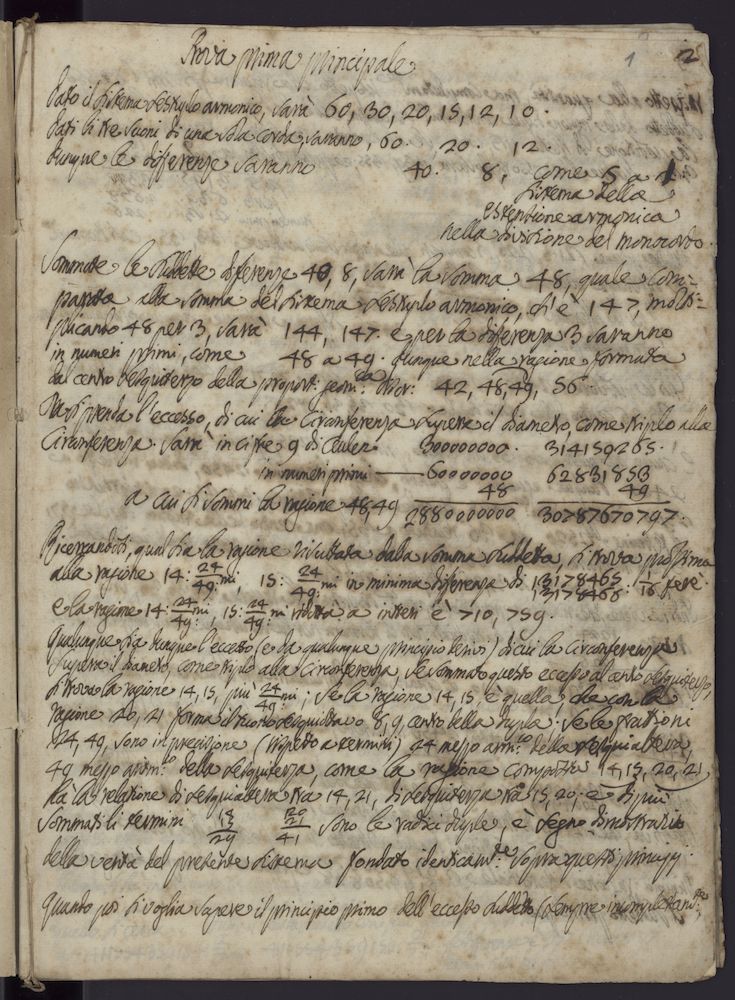 1 2
Prova prima principale
Dato il sistema sestuplo armonico, sarà 60, 30, 20, 15, 12, 10.
Dati li tre suoni di una sola corda, saranno, 60. 20. 12.
dunque le differenze saranno 40. 8, come 5 a 1
sistema della
estensione armonica
nella divisione del monocordo.
Sommate le suddette differenze 40, 8, sarà la somma 48, quale com=
parata alla somma del sistema sestuplo armonico, ch'è 147, molti=
plicando 48 per 3, sarà 144, 147. e per la differenza 3 saranno
in numeri primi, come 48 a 49. dunque nella ragione formata
dal centro sesquiterzo della proport: geom: 42, 48, 49, 56.
Si prenda l'eccesso, di cui la circonferenza supera il diametro, come triplo alla
circonferenza. Sarà in cifre 9 di 300000000. 314159265.
in numeri primi — 60000000 62831853
48 49
a cui si sommi la ragione 48, 49 2880000000 3078760797.
Ricercandosi, qual sia la ragione risultata dalla somma suddetta, si trova prossima
alla ragione 14: 24/49: mi, 15: 24/49: mi in minima differenza di
e la ragione 14: 24/49: mi, 15: 24/49: mi ridotta a interi è 710, 759.
Qualunque sia dunque l'eccesso (e da qualunque principio derivi) di cui la circonferenza
supera il diametro, come triplo alla circonferenza, se sommato questo eccesso al cento sesquiterzo,
si trova la ragione 14, 15, più 24/49: mi; se la ragione 14, 15 è quella, che con la
ragione 20, 21 forma il sesquiottavo 8, 9, centro della dupla. Se le frazioni
24, 49, sono in precisione (rispetto a termini) 24 mezzo arm:co della sesquialtera,
49 mezzo aritm:co della sesquiterza, come la ragione composta 14, 15, 20, 21
ha la relazione di sesquialtera tra 14, 21, di sesquiterza tra 15, 20; e di più
sommati li termini 14/15/29 20/21/41 sono le radici duple, è segno dimostrativo
della verità del presente sistema fondato identicam:te sopra questi principj.
Quando poi si voglia sapere il principio primo dell'eccesso suddetto (sempre